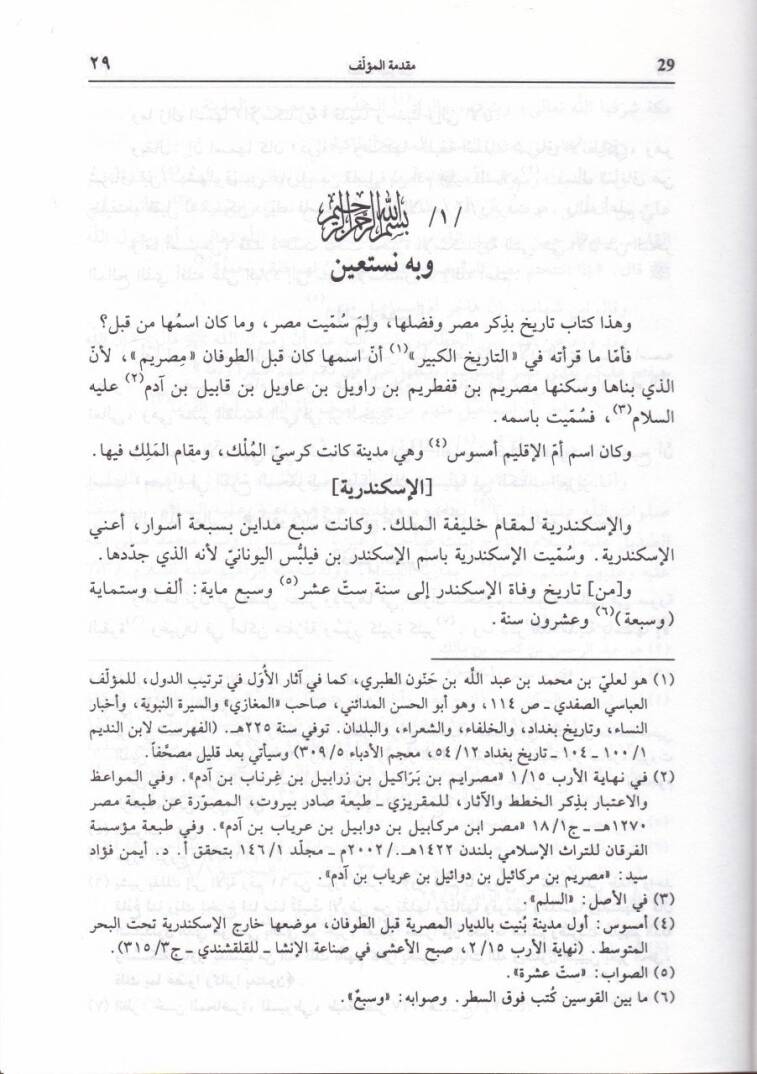 29 مقدمة المؤلّف ٢٩
/١/ بسم الله الرحمن الرحيم
وبه نستعين
وهذا كتاب تاريخ بذِكر مصر وفضلها، ولِمَ سُمّيت مصر، وما كان اسمُها من قبل؟
فأمّا ما قرأته في «التاريخ الكبير»(١) أنّ اسمها كان قبل الطوفان «مِصريم»، لأنّ
الذي بناها وسكنها مصريم بن قفطريم بن راويل بن عاويل بن قابيل بن آدم(٢) عليه
السلام(٣)، فسُمّيت باسمه.
وكان اسم أمّ الإقليم أمسوس(٤) وهي مدينة كانت كرسيّ المُلك، ومقام المَلِك فيها.
[الإسكندرية]
والإسكندرية لمقام خليفة الملك. وكانت سبع مداين بسبعة أسوار، أعني
الإسكندرية. وسُمّيت الإسكندرية باسم الإسكندر بن فيلبُس اليونانيّ لأنه الذي جدّدها.
و[من] تاريخ وفاة الإسكندر إلى سنة ستّ عشر(٥) وسبع ماية: ألف وستماية
(وسبعة)(٦) وعشرون سنة.
(١) هو لعليّ بن محمد بن عبد الله بن حَتُون الطبري، كما في آثار الأُوَل في ترتيب الدول، للمؤلّف
العباسي الصفدي ـ ص ١١٤، وهو أبو الحسن المدائني، صاحب «المغازي» والسيرة النبوية، وأخبار
النساء، وتاريخ بغداد، والخلفاء، والشعراء، والبلدان. توفي سنة ٢٢٥هـ. (الفهرست لابن النديم
١/ ١٠٠ ـ ١٠٤ ـ تاريخ بغداد ١٢/ ٥٤، معجم الأدباء ٥/ ٣٠٩) وسيأتي بعد قليل مصحَّفاً.
(٢) في نهاية الأرب ١٥/ ١ «مصرايم بن بَرَاكيل بن زرابيل بن غرناب بن آدم». وفي المواعظ
والاعتبار بذِكر الخطط والآثار، للمقريزي ـ طبعة صادر بيروت، المصوّرة عن طبعة مصر
١٢٧٠هـ ـ ج١/ ١٨ «مصر ابن مركابيل بن دوابيل بن عرياب بن آدم». وفي طبعة مؤسسة
الفرقان للتراث الإسلامي بلندن ١٤٢٢هـ./ ٢٠٠٢م ـ مجلّد ١/ ١٤٦ بتحقق أ. د. أيمن فؤاد
سيد: «مصريم بن مركائيل بن دوائيل بن عرياب بن آدم».
(٣) في الأصل: «السلم».
(٤) أمسوس: أول مدينة بُنيت بالديار المصرية قبل الطوفان، موضعها خارج الإسكندرية تحت البحر
المتوسط. (نهاية الأرب ١٥/ ٢، صبح الأعشى في صناعة الإنشا ـ للقلقشندي ـ ج٣/ ٣١٥).
(٥) الصواب: «ستّ عشرة».
(٦) ما بين القوسين كُتب فوق السطر. وصوابه: «وسبعٌ».